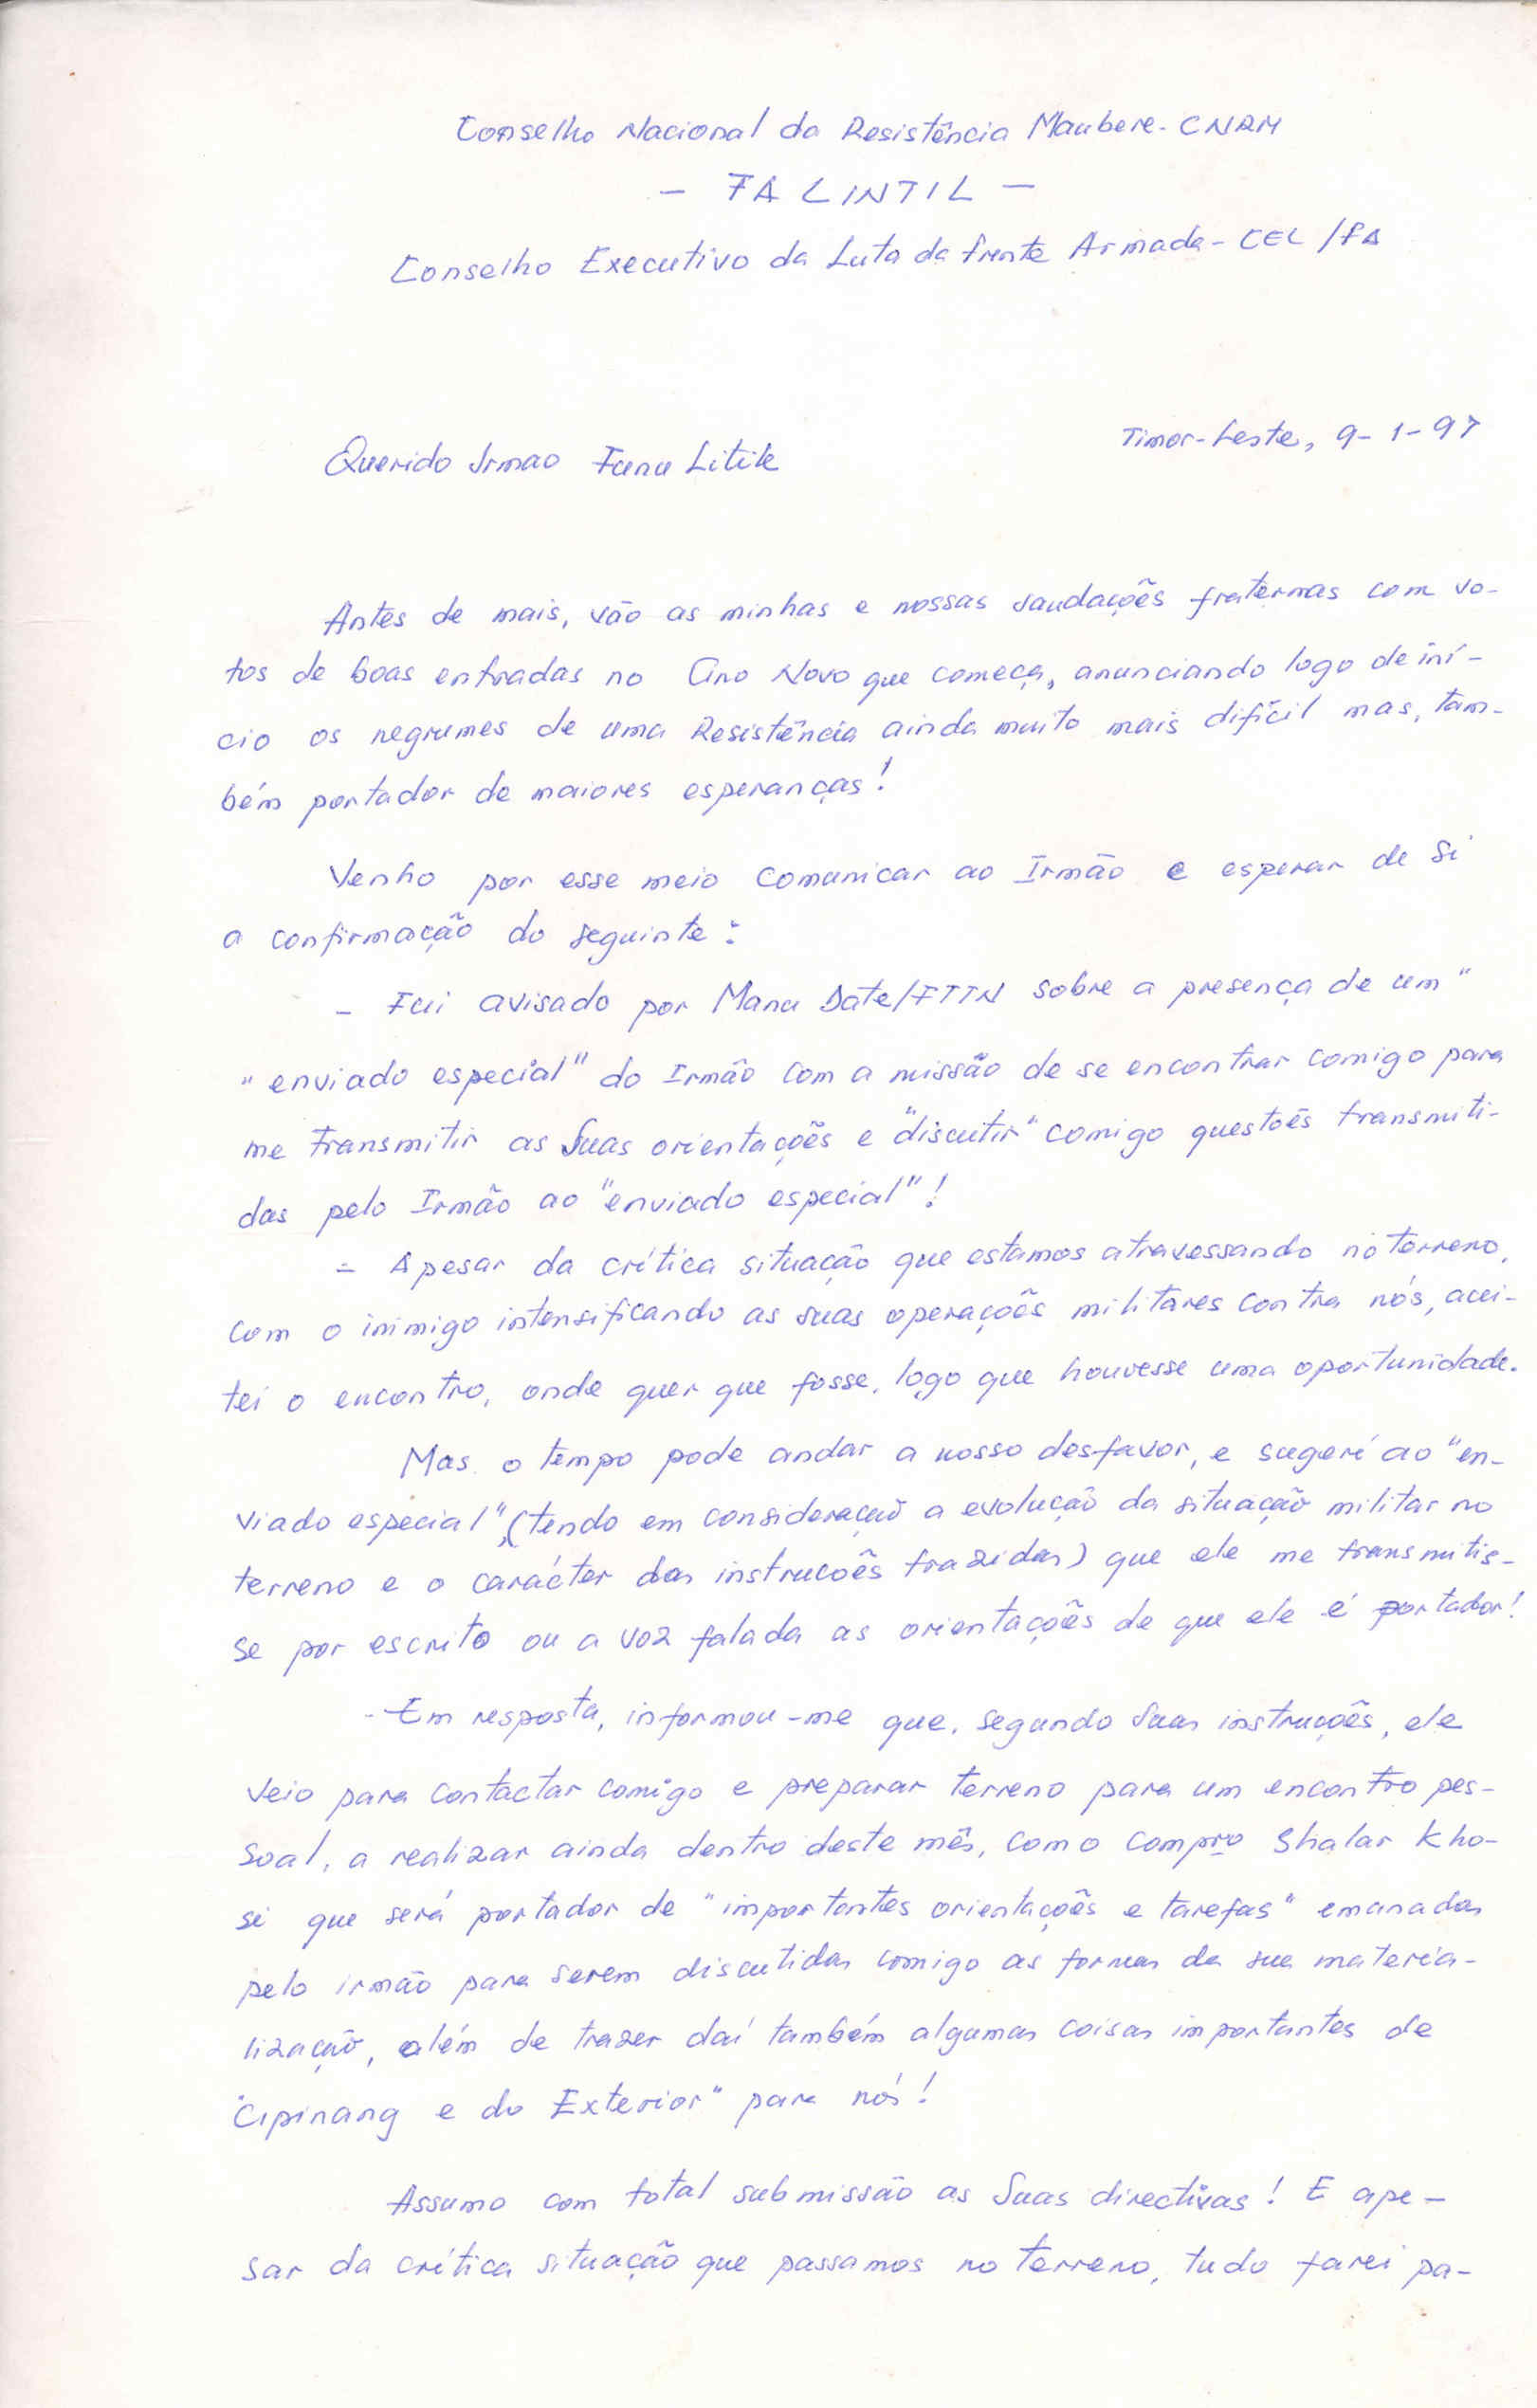 Conselho Nacional da Resistência Maubere - CNRM
- FALINTIL -
Conselho Executivo da Luta da frente Armada - CEL/FA
Timor-Leste, 9-1-97
Querido Irmao Funu Litik
Antes de mais, vão as minhas e nossas saudações fraternas com vo-
tos de boas entradas no Ano Novo que começa, anunciando logo de iní-
cio os negrumes de uma Resistência ainda muito mais difícil mas, tam-
bém portador de maiores esperanças!
Venho por esse meio comunicar ao Irmão e esperar de Si
a confirmação do seguinte:
- Fui avisado por Mana Date/FTTN sobre a presença de um "
"enviado especial" do Irmão com a missão de se encontrar comigo para
me transmitir as Suas orientações e "discutir" comigo questões transmiti-
das pelo Irmão ao "enviado especial"!
- Apesar da crítica situação que estamos atravessando no terreno,
com o inimigo intensificando as suas operações militares contra nós, acei-
tei o encontro, onde quer que fosse, logo que houvesse uma oportunidade.
Mas o tempo pode andar a nosso desfavor, e sugeri ao "en-
viado especial", (tendo em consideração a evolução da situação militar no
terreno e o carácter das instrucões trazidas) que ele me transmitis-
se por escrito ou a voz falada as orientações de que ele é portador!
- Em resposta, informou-me que, segundo Suas instruções, ele
veio para contactar comigo e preparar terreno para um encontro pes-
soal, a realizar ainda dentro deste mês, com o compro Shalar Kho-
si que será portador de "importantes orientações e tarefas" emanadas
pelo irmão para serem discutidas comigo as formas da sua materia-
lização, além de trazer daí também algumas coisas importantes de
"Cipinang e do Exterior" para nós!
Assumo com total submissão as Suas directivas! E ape-
sar da crítica situação que passamos no terreno, tudo farei pa-